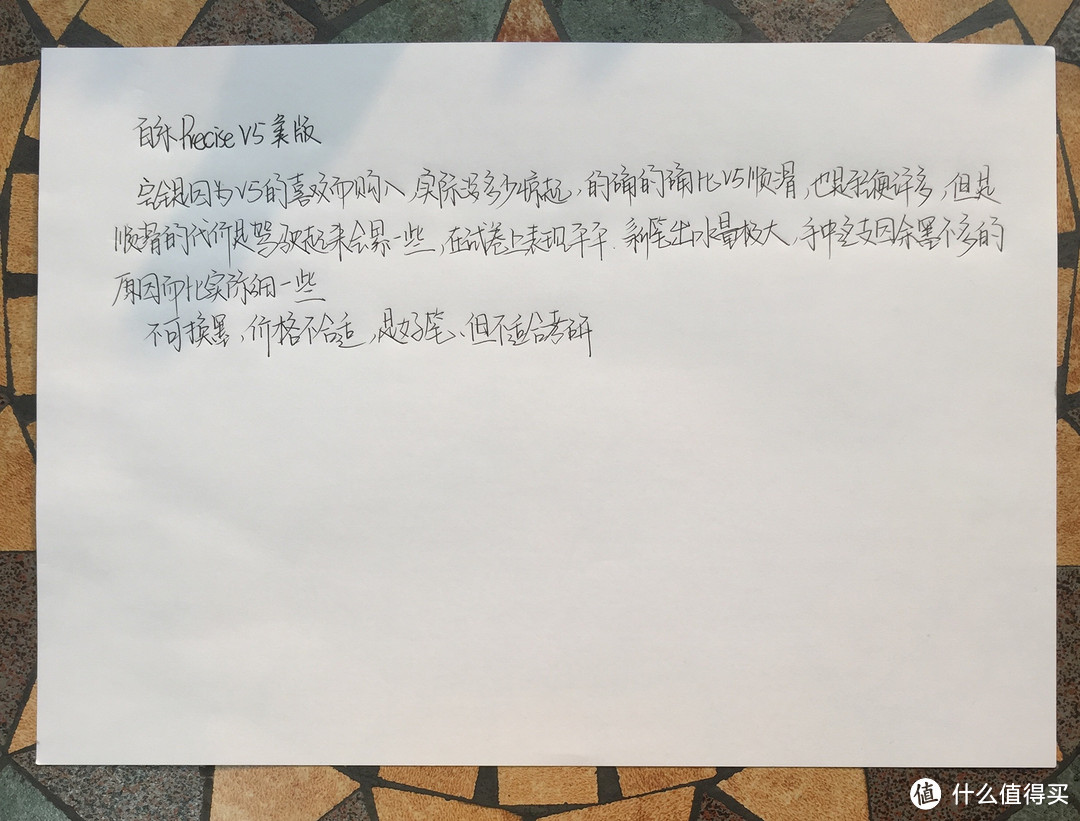 百乐 Precise V5 美版
完全是因为V5的喜欢而购入,实际没多少惊起,的确的确比V5顺滑,也是轻便许多,但是
顺滑的代价是驾驶起来会累一些,在试卷上表现平平.新笔出水量极大,手中这支因余墨不多的
原因而比实际细一些
不可换墨,价格不合适,是好笔、但不适合考研
值 什么值得买